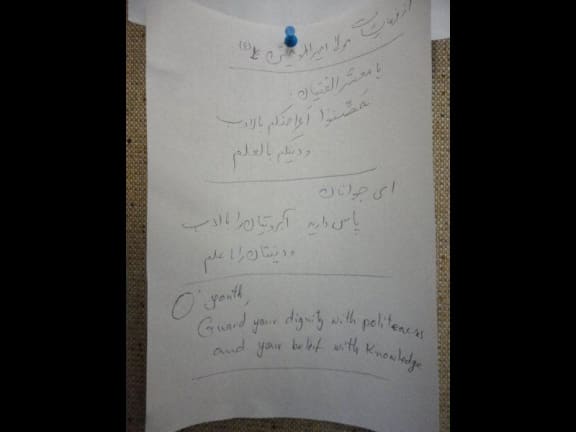 از فرمایشات مولا امیرالمومنین علی (ع)
یا معشر الفتیان
حصّنوا أعراضکم بالادب
و دینکم بالعلم
ای جوانان
پاس دارید آبرویتان را با ادب
و دینتان را با علم
O' youth,
Guard your dignity with politeness
and your belief with Knowledge